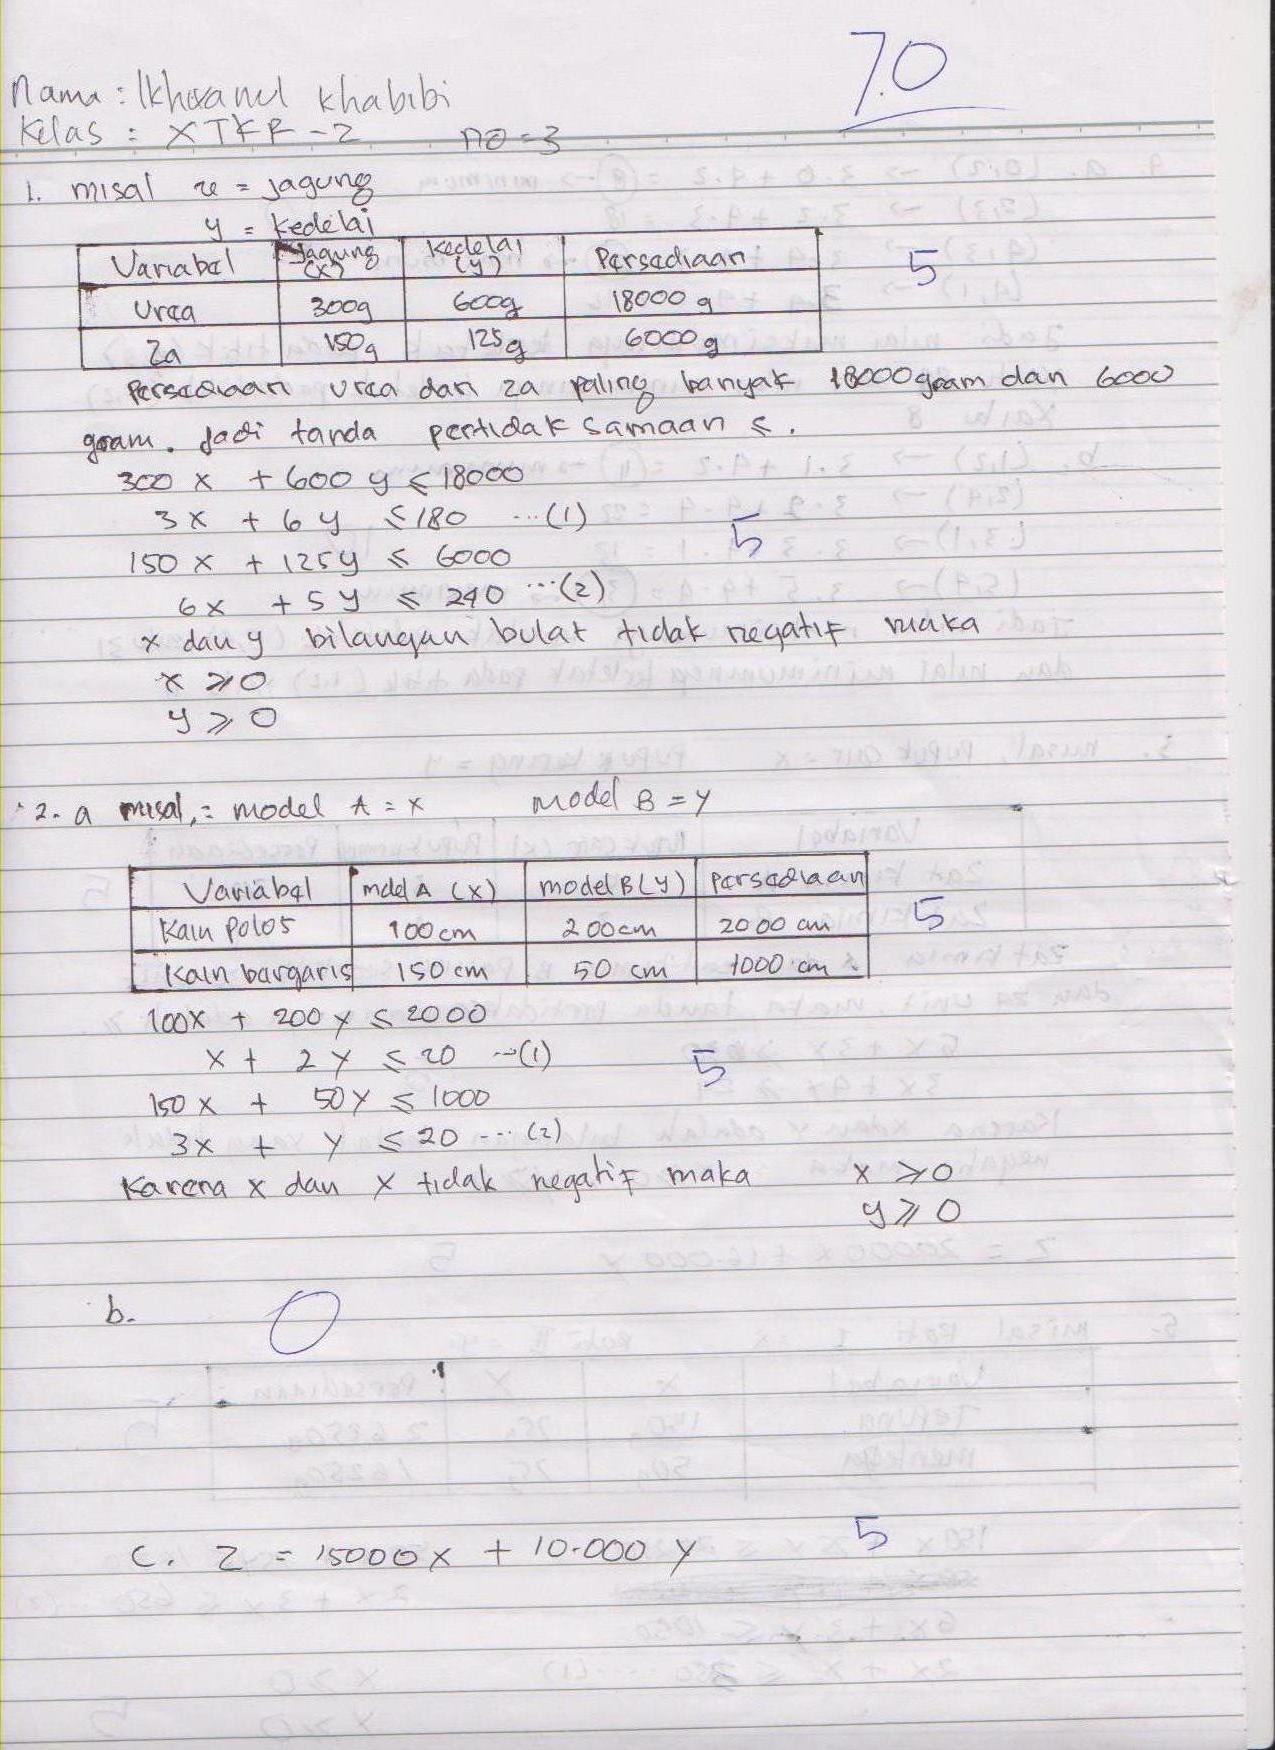 70
Nama : Ikhsanul khabibi
Kelas : X TKR - 2 no = 3
1. misal x = jagung
y = kedelai
Variabel Jagung (x) Kedelai (y) Persediaan 5
Urea 300g 600g 18000 g
Za 150g 125g 6000g
Persediaan urea dan za paling banyak 18000gram dan 6000
gram. Jadi tanda pertidak samaan ≤.
300 x + 600 y ≤ 18000
3x + 6y ≤ 180 ...(1) 5
150 x + 125y ≤ 6000
6x + 5y ≤ 240 ...(2)
x dan y bilangan bulat tidak negatif maka
x ≥ 0
y ≥ 0
2. a misal, = model A = x model B = y
Variabel mdel A (x) model B (y) persediaan
Kain Polos 100cm 200cm 2000 cm 5
Kain bargaris 150 cm 50 cm 1000 cm
100x + 200y ≤ 2000
x + 2y ≤ 20 ...(1) 5
150x + 50y ≤ 1000
3x + y ≤ 20 ... (2)
Karena x dan x tidak negatif maka x ≥ 0
y ≥ 0
b. 0
c. Z = 15000x + 10.000 y 5